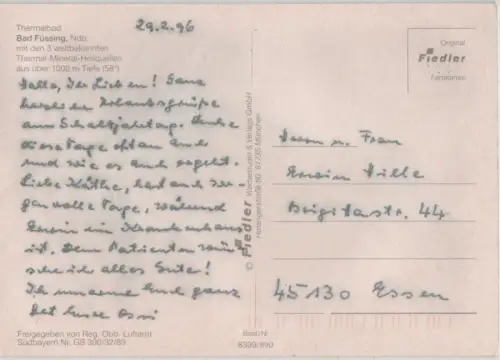 29.2.96
Thermalbad
Bad Füssing, Ndb.
mit den 3 weltbekannten
Thermal-Mineral-Heilquellen
aus über 1000 m Tiefe (56°)
Hallo, Ihr Lieben! Ganz
herzliche Urlaubsgrüße
am Schaltjahrtag. Denke
diese Tage oft an Euch
und wie es Euch ergeht.
Liebe Käthe, hast auch
volle Tage, während
Erwin im Krankenhaus
ist. Dem Patienten wün-
sche ich alles Gute!
Ich umarme Euch ganz
Eure
Freigegeben von Reg. Obb. Luftamt
Südbayern Nr. GS 300/32/89
© Fiedler Werbestudio & Verlags GmbH
München
Best.-Nr.
Original
Fiedler
Farbkarte
Herrn u. Frau
Erwin Dille
Brigittastr. 44
45130 Essen